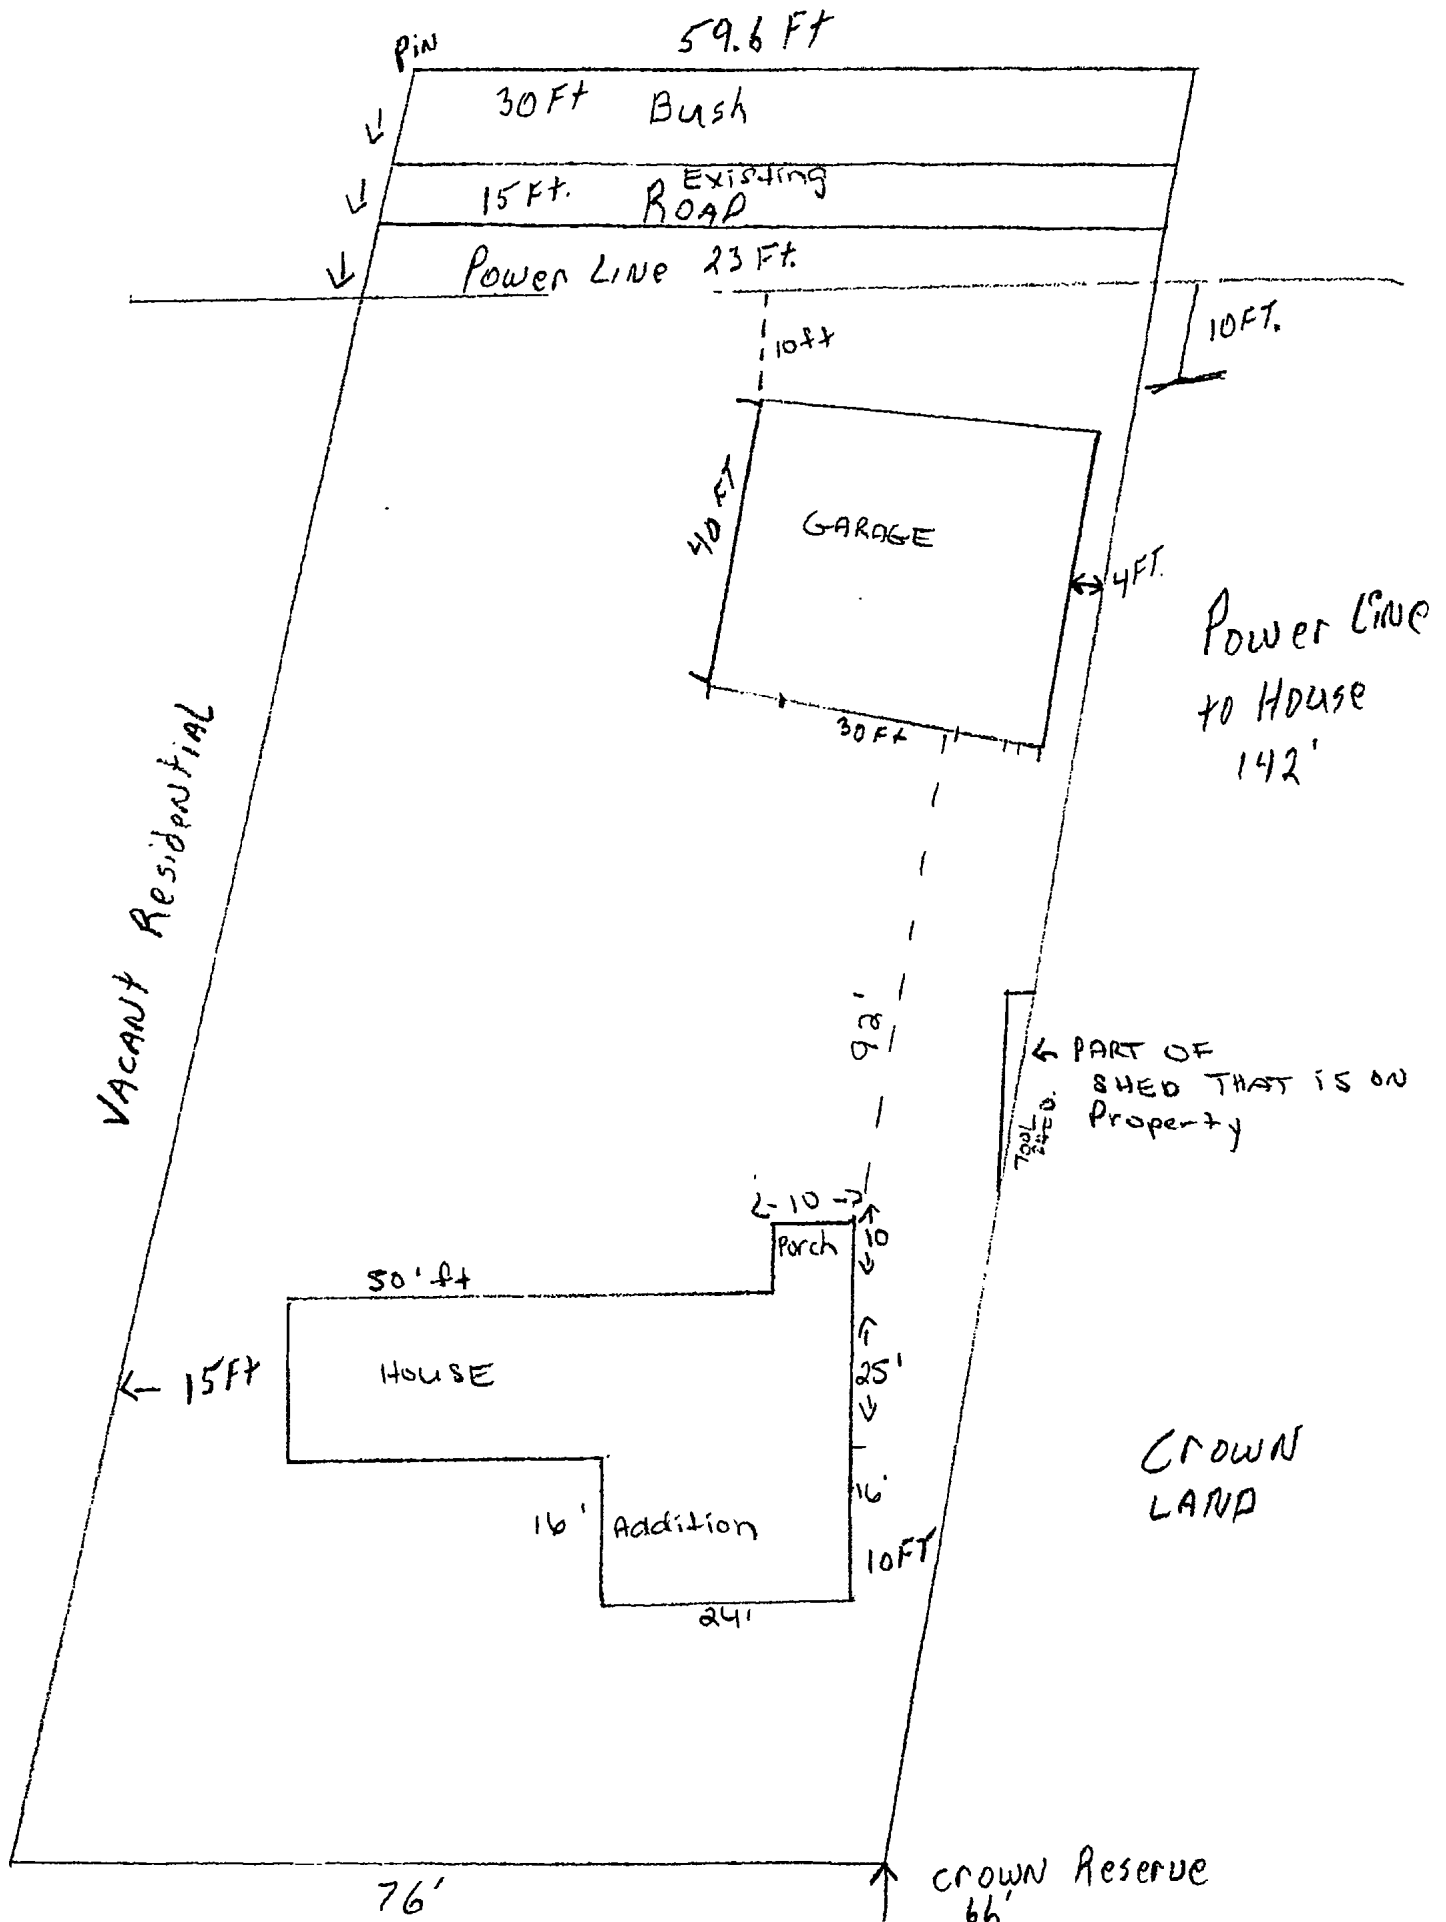 59.6 Ft
PiN
30Ft Bush
Existing
15Ft. ROAD
Power LiNe 23 Ft.
10ft
10FT.
40 FT
GARAGE
4FT.
30Ft
Power LiNe
to House
142'
VACANt ResidentiAL
92'
← PART OF
SHED THAT iS ON
Property
TOOL
SHED.
←10→
Porch
10
50'ft
← 15Ft
HOUSE
25'
16'
16'
Addition
10FT
24'
CrowN
LAND
76'
crowN Reserve
66'